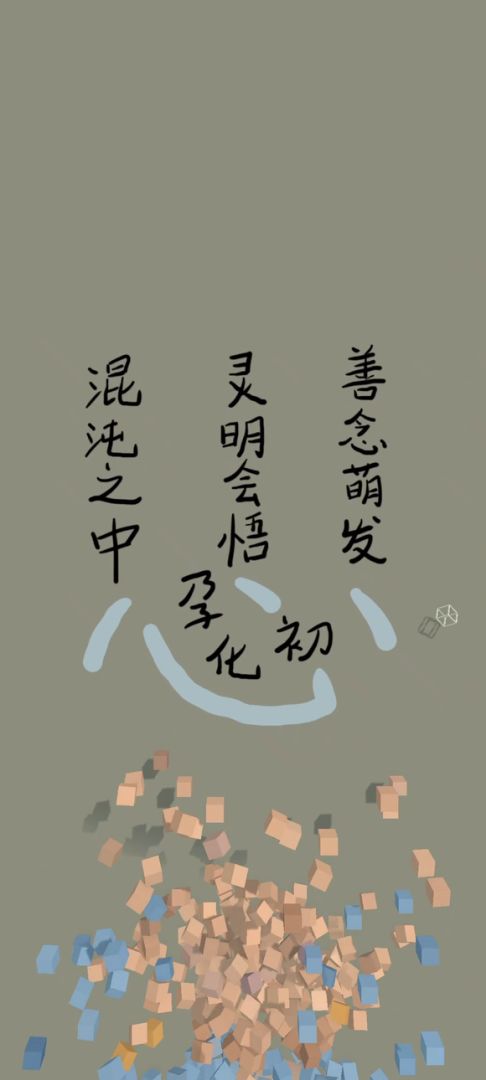 混沌之中
灵明会悟
善念萌发
心
孕化初